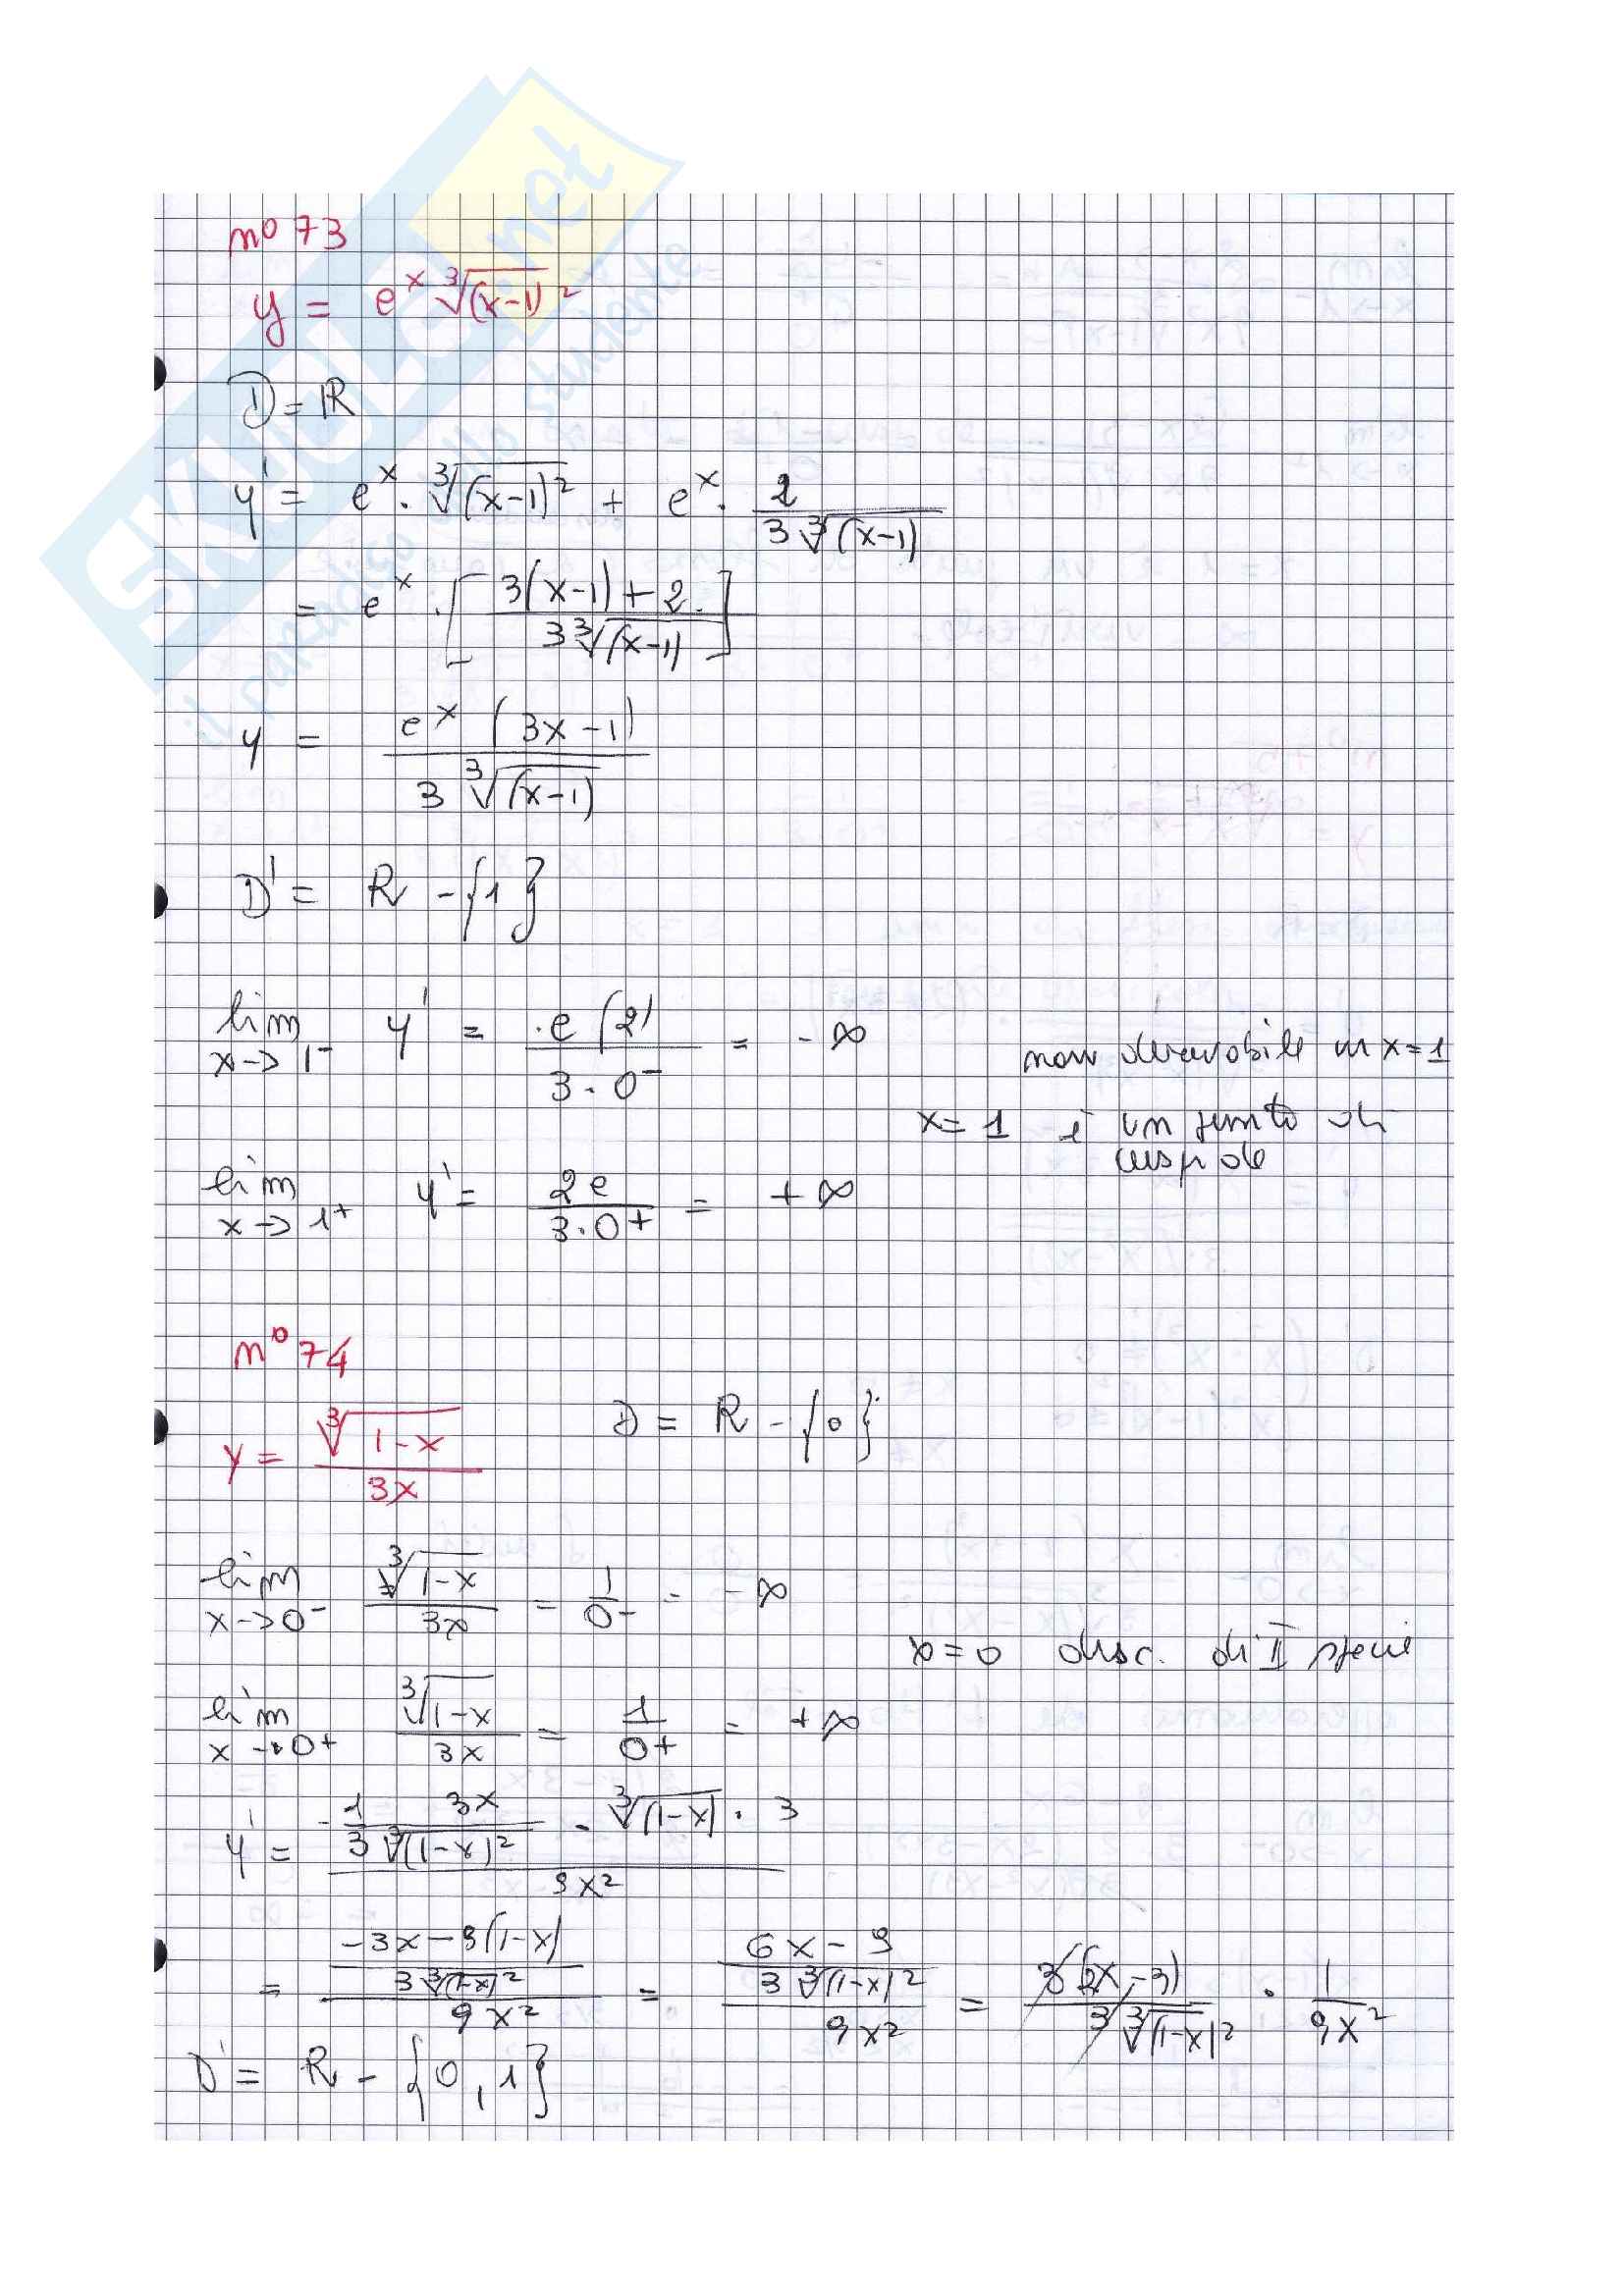 SKUOLA.net
il paradiso dello studente
n° 73
y = e^x ∛(x-1)²
D = R
y' = e^x · ∛(x-1)² + e^x · 2 / 3∛(x-1)
= e^x · [ 3(x-1)+2 / 3∛(x-1) ]
y = e^x (3x-1) / 3∛(x-1)
D' = R - {1}
lim x→1⁻ y' = e(2) / 3·0⁻ = -∞ non derivabile in x=1
x=1 è un punto di
cuspide
lim x→1⁺ y' = 2e / 3·0⁺ = +∞
n° 74
y = ∛1-x / 3x D = R - {0}
lim x→0⁻ ∛1-x / 3x = 1 / 0⁻ = -∞
x=0 disc. di II specie
lim x→0⁺ ∛1-x / 3x = 1 / 0⁺ = +∞
y' = - 1 / 3∛(1-x)² 3x - ∛(1-x) · 3 / 9x²
= -3x-9(1-x) / 3∛(1-x)² / 9x² = 6x-9 / 3∛(1-x)² / 9x² = 3(2x-3) / 3∛(1-x)² · 1 / 9x²
D' = R - {0, 1}